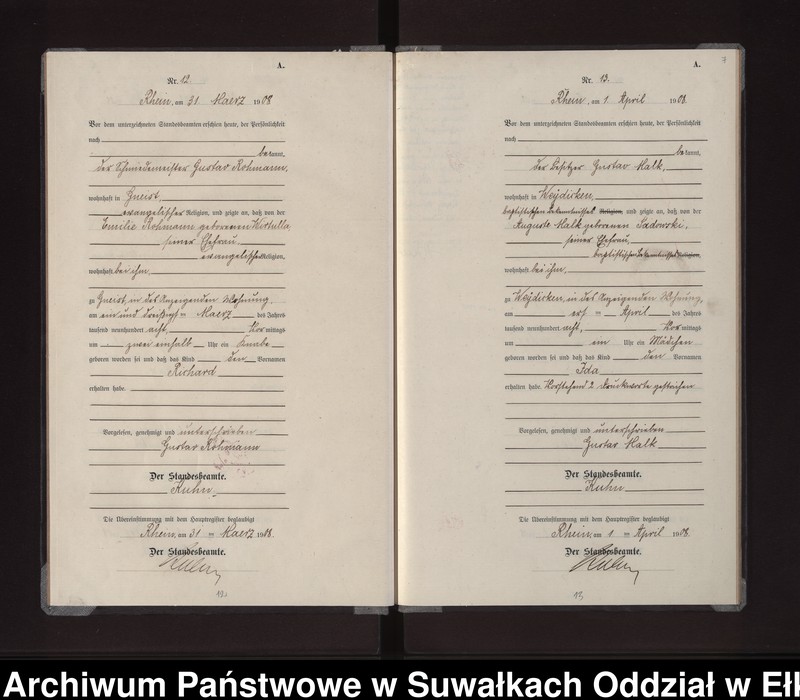 A.
Nr. 12.
Rhein, am 31 Maerz 1908
Vor dem unterzeichneten Standesbeamten erschien heute, der Persönlichkeit
nach
bekannt,
der Schmiedemeister Gustav Rohmann,
wohnhaft in Gneist,
evangelischer Religion, und zeigte an, daß von der
Emilie Rohmann geborenen
seiner Ehefrau,
evangelischer Religion,
wohnhaft bei ihm,
zu Gneist, in des Anzeigenden Wohnung,
am ein und dreißig = Maerz des Jahres
tausend neunhundert acht, Vormittags
um zwei einhalb Uhr ein Knabe
geboren worden sei und daß das Kind den Vornamen
Richard
erhalten habe.
Vorgelesen, genehmigt und unterschrieben
Gustav Rohmann
Der Standesbeamte.
Kuhn
Die Übereinstimmung mit dem Hauptregister beglaubigt
Rhein, am 31 = Maerz 1908.
Der Standesbeamte.
Kuhn
12.
7
A.
Nr. 13.
Rhein, am 1 April 1908
Vor dem unterzeichneten Standesbeamten erschien heute, der Persönlichkeit
nach
bekannt,
der Besitzer Gustav Halk,
wohnhaft in Weydicken,
baptistischen Bekenntnisses Religion, und zeigte an, daß von der
Auguste Halk geborenen Sadowski,
seiner Ehefrau,
baptistischen Bekenntnisses Religion,
wohnhaft bei ihm,
zu Weydicken, in des Anzeigenden Wohnung,
am erst = April des Jahres
tausend neunhundert acht, Vormittags
um ein Uhr ein Mädchen
geboren worden sei und daß das Kind den Vornamen
Ida
erhalten habe. Vorstehend 2 Druckworte gestrichen
Vorgelesen, genehmigt und unterschrieben
Gustav Halk
Der Standesbeamte.
Kuhn
Die Übereinstimmung mit dem Hauptregister beglaubigt
Rhein, am 1 = April 1908.
Der Standesbeamte.
Kuhn
13.
Archiwum Państwowe w Suwałkach Oddział w Eł